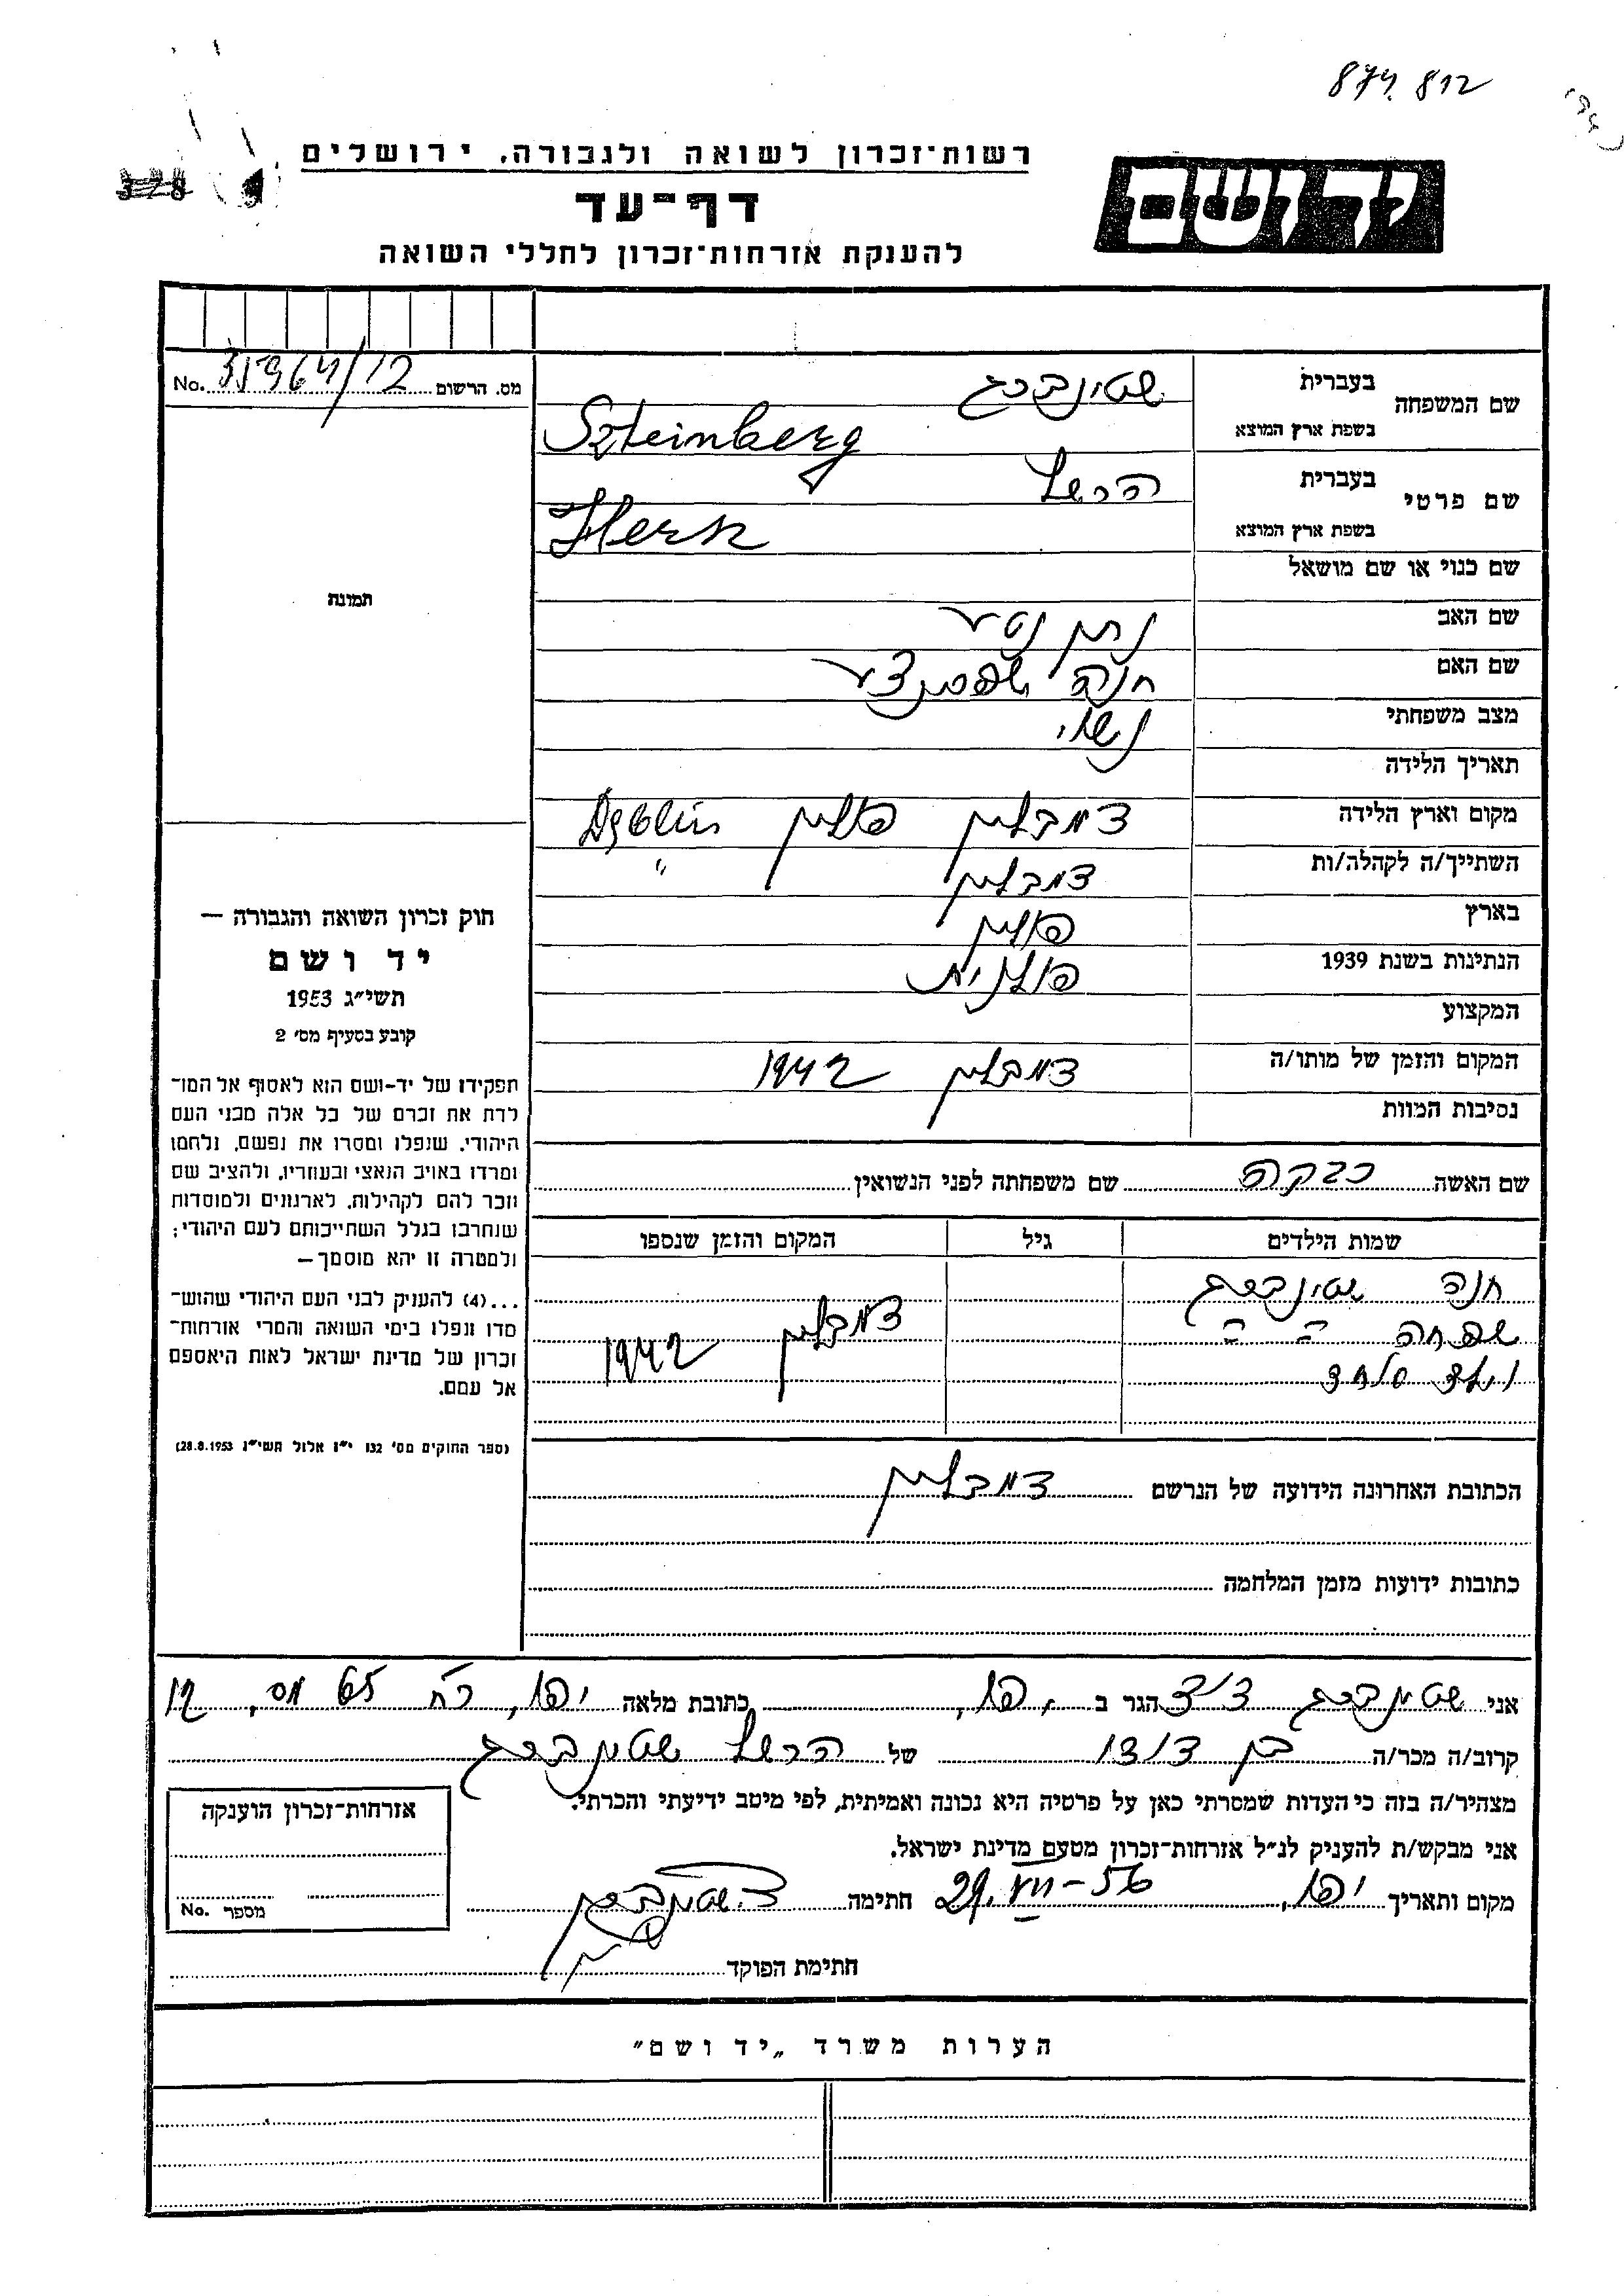 874.812
רשות־זכרון לשואה ולגבורה, ירושלים
יד ושם
דף־עד
להענקת אזרחות־זכרון לחללי השואה
מס. הרשום 35964/12 No.
שם המשפחה בעברית שטינברג
בשפת ארץ המוצא Szteinberg
שם פרטי בעברית הרשל
בשפת ארץ המוצא Hersz
שם כנוי או שם מושאל
שם האב נתן נטע
שם האם חנה שפרינצע
מצב משפחתי נשוי
תאריך הלידה
מקום וארץ הלידה דמבלין פולין Dęblin
השתייך/ה לקהלה/ות דמבלין "
בארץ פולין
הנתינות בשנת 1939 פולנית
המקצוע
המקום והזמן של מותו/ה דמבלין 1942
נסיבות המוות
שם האשה רבקה שם משפחתה לפני הנשואין
שמות הילדים גיל המקום והזמן שנספו
חנה שטינברג
שמחה " "
וילד
דמבלין 1942
הכתובת האחרונה הידועה של הנרשם דמבלין
כתובות ידועות מזמן המלחמה
תמונה
חוק זכרון השואה והגבורה —
יד ושם
תשי"ג 1953
קובע בסעיף מס' 2
תפקידו של יד-ושם הוא לאסוף אל המו־
לדת את זכרם של כל אלה מבני העם
היהודי, שנפלו ומסרו את נפשם, נלחמו
ומרדו באויב הנאצי ובעוזריו, ולהציב שם
וזכר להם לקהילות, לארגונים ולמוסדות
שנחרבו בגלל השתייכותם לעם היהודי;
ולמטרה זו יהא מוסמך —
...(4) להעניק לבני העם היהודי שהוש־
מדו ונפלו בימי השואה והמרי אזרחות־
זכרון של מדינת ישראל לאות היאספם
אל עמם.
(ספר החוקים מס' 132 י"ז אלול תשי"ג 28.8.1953)
אני שטינברג דוד הגר ב יפו, כתובת מלאה יפו, רח' 65 מס. 12
קרוב/ה מכר/ה בן דודו של הרשל שטינברג
מצהיר/ה בזה כי העדות שמסרתי כאן על פרטיה היא נכונה ואמיתית, לפי מיטב ידיעתי והכרתי.
אני מבקש/ת להעניק לנ"ל אזרחות־זכרון מטעם מדינת ישראל.
מקום ותאריך יפו, 29.VII-56 חתימה ד. שטינברג
חתימת הפוקד
אזרחות־זכרון הוענקה
מספר No.
הערות משרד „יד ושם"